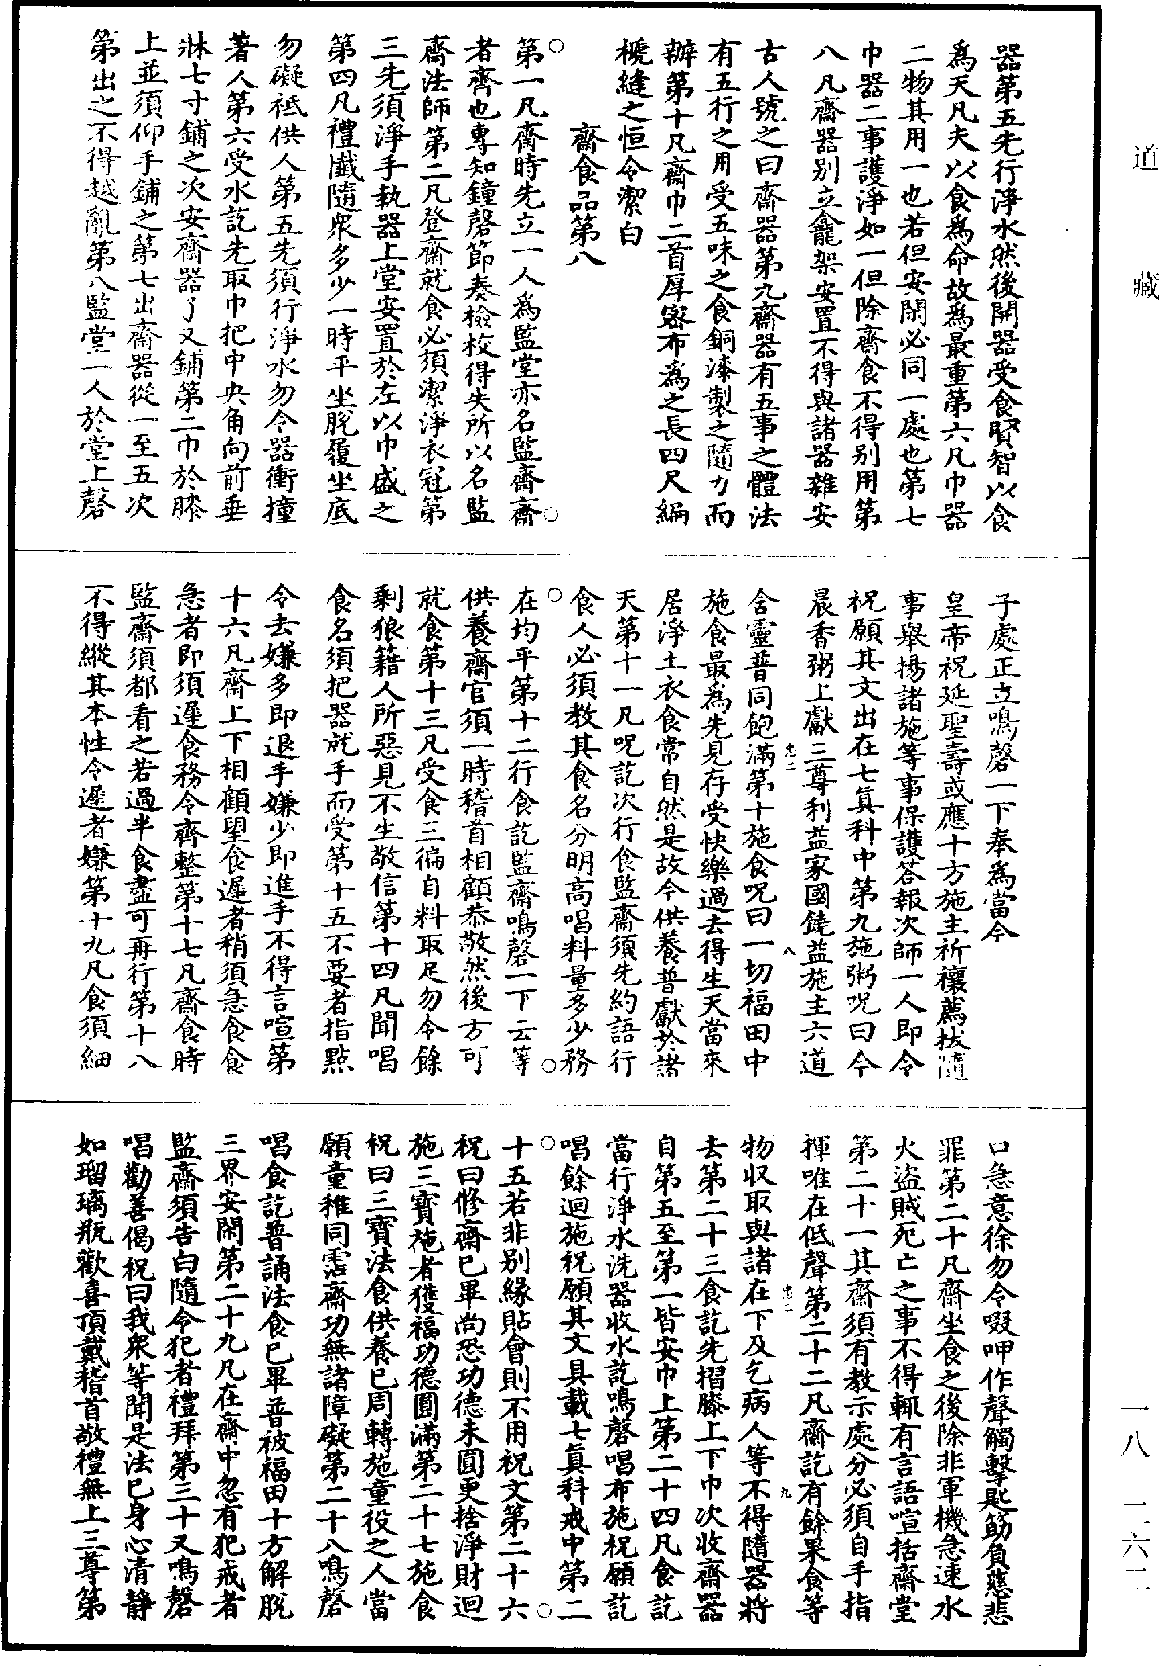 道藏
一八 一六二
器第五先行淨水然後開器受食賢智以食
為天凡夫以食為命故為最重第六凡巾器
二物其用一也若但安閑必同一處也第七
巾器二事護淨如一但除齋食不得別用第
八凡齋器別立龕架安置不得與諸器雜安
古人號之曰齋器第九齋器有五事之體法
有五行之用受五味之食銅漆製之隨力而
辦第十凡齋巾二首厚密布為之長四尺編
梔縫之恒令潔白
齋食品第八
第一凡齋時先立一人為監堂亦名監齋齋
者齊也專知鐘磬節奏檢校得失所以名監
齋法師第二凡登齋就食必須潔淨衣冠第
三先須淨手執器上堂安置於左以巾盛之
第四凡禮懺隨衆多少一時平坐脫履坐底
勿礙祗供人第五先須行淨水勿令器衝撞
著人第六受水訖先取巾把中央角向前垂
牀七寸鋪之次安齋器了又鋪第二巾於膝
上並須仰手鋪之第七出齋器從一至五次
第出之不得越亂第八監堂一人於堂上磬
子處正立鳴磬一下奉為當今
皇帝祝延聖壽或應十方施主祈禳薦拔隨
事舉揚諸施等事保護荅報次師一人即令
祝願其文出在七真科中第九施粥呪曰今
晨香粥上獻三尊利益家國饒益施主六道
含靈普同飽滿第十施食呪曰一切福田中
施食最為先見存受快樂過去得生天當來
居淨土衣食常自然是故今供養普獻於諸
天第十一凡呪訖次行食監齋須先約語行
食人必須教其食名分明高唱料量多少務
在均平第十二行食訖監齋鳴磬一下云等
供養齋官須一時稽首相顧恭敬然後方可
就食第十三凡受食三徧自料取足勿令餘
剩狼籍人所惡見不生敬信第十四凡聞唱
食名須把器就手而受第十五不要者指點
令去嫌多即退手嫌少即進手不得言喧第
十六凡齋上下相顧望食遲者稍須急食食
急者即須遲食務令齊整第十七凡齋食時
監齋須都看之若過半食盡可再行第十八
不得縱其本性令遲者嫌第十九凡食須細
口急意徐勿令啜呷作聲觸擊匙筯負慈悲
罪第二十凡齋坐食之後除非軍機急速水
火盜賊死亡之事不得輒有言語喧括齋堂
第二十一其齋須有教示處分必須自手指
揮唯在低聲第二十二凡齋訖有餘果食等
物收取與諸在下及乞病人等不得隨器將
去第二十三食訖先摺膝上下巾次收齋器
自第五至第一皆安巾上第二十四凡食訖
當行淨水洗器收水訖鳴磬唱布施祝願訖
唱餘迴施祝願其文具載七真科戒中第二
十五若非別緣貼會則不用祝文第二十六
祝曰修齋已畢尚恐功德未圓更捨淨財迴
施三寶施者獲福功德圓滿第二十七施食
祝曰三寶法食供養已周轉施童役之人當
願童稚同霑齋功無諸障礙第二十八鳴磬
唱食訖普誦法食已畢普被福田十方解脫
三界安閑第二十九凡在齋中忽有犯戒者
監齋須告白隨令犯者禮拜第三十又鳴磬
唱勸善偈祝曰我衆等聞是法已身心清靜
如瑠璃瓶歡喜頂戴稽首敬禮無上三尊第